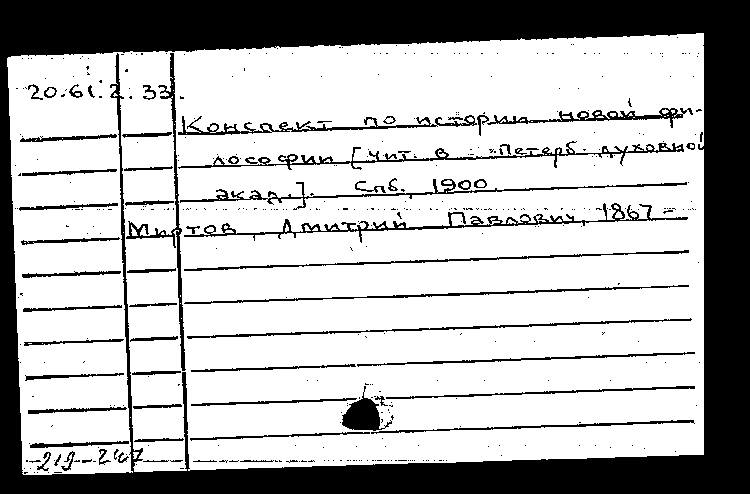 20.61.2.33.
Конспект по истории новой фи-
лософии [чит. в Петерб. духовной
акад.]. Спб., 1900.
Миртов, Дмитрий Павлович, 1867-
219-247